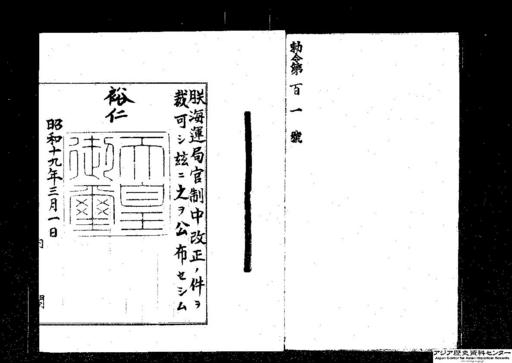 勅令第百一號
朕海運局官制中改正ノ件ヲ
裁可シ茲ニ之ヲ公布セシム
裕仁
天皇
御璽
昭和十九年三月一日
アジア歴史資料センター
Japan Center for Asian Historical Records